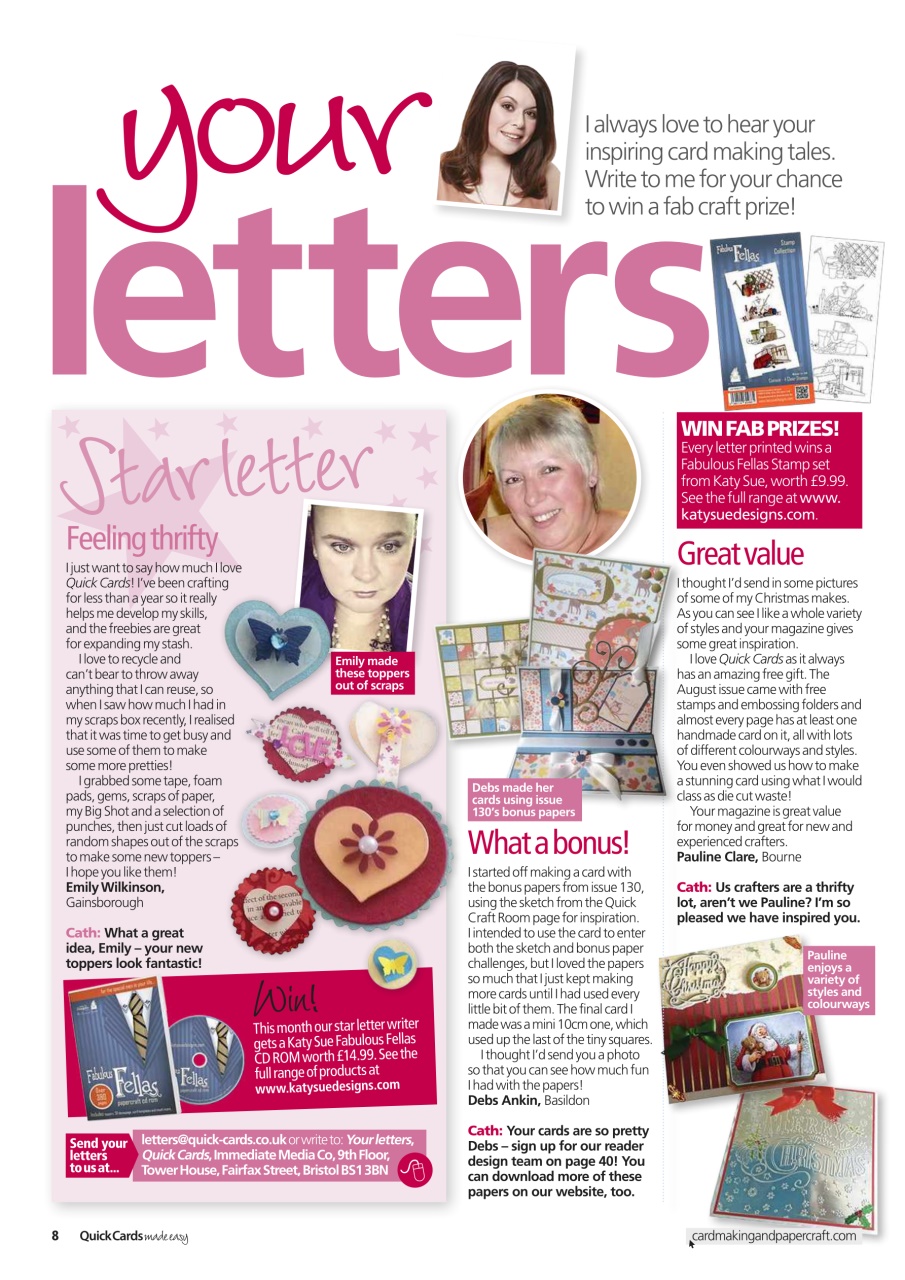 your
letters
I always love to hear your
inspiring card making tales.
Write to me for your chance
to win a fab craft prize!
Fabulous
Fellas
Stamp
Collection
WIN FAB PRIZES!
Every letter printed wins a
Fabulous Fellas Stamp set
from Katy Sue, worth £9.99.
See the full range at www.
katysuedesigns.com.
Star letter
Feeling thrifty
I just want to say how much I love
Quick Cards! I've been crafting
for less than a year so it really
helps me develop my skills,
and the freebies are great
for expanding my stash.
I love to recycle and
can't bear to throw away
anything that I can reuse, so
when I saw how much I had in
my scraps box recently, I realised
that it was time to get busy and
use some of them to make
some more pretties!
I grabbed some tape, foam
pads, gems, scraps of paper,
my Big Shot and a selection of
punches, then just cut loads of
random shapes out of the scraps
to make some new toppers –
I hope you like them!
Emily Wilkinson,
Gainsborough
Cath: What a great
idea, Emily – your new
toppers look fantastic!
Emily made
these toppers
out of scraps
LOVE
for the special men in your life...
Fabulous
Fellas
papercraft cd rom
Win!
This month our star letter writer
gets a Katy Sue Fabulous Fellas
CD ROM worth £14.99. See the
full range of products at
www.katysuedesigns.com
Send your
letters
to us at...
letters@quick-cards.co.uk or write to: Your letters,
Quick Cards, Immediate Media Co, 9th Floor,
Tower House, Fairfax Street, Bristol BS1 3BN
Debs made her
cards using issue
130's bonus papers
What a bonus!
I started off making a card with
the bonus papers from issue 130,
using the sketch from the Quick
Craft Room page for inspiration.
I intended to use the card to enter
both the sketch and bonus paper
challenges, but I loved the papers
so much that I just kept making
more cards until I had used every
little bit of them. The final card I
made was a mini 10cm one, which
used up the last of the tiny squares.
I thought I'd send you a photo
so that you can see how much fun
I had with the papers!
Debs Ankin, Basildon
Cath: Your cards are so pretty
Debs – sign up for our reader
design team on page 40! You
can download more of these
papers on our website, too.
Great value
I thought I'd send in some pictures
of some of my Christmas makes.
As you can see I like a whole variety
of styles and your magazine gives
some great inspiration.
I love Quick Cards as it always
has an amazing free gift. The
August issue came with free
stamps and embossing folders and
almost every page has at least one
handmade card on it, all with lots
of different colourways and styles.
You even showed us how to make
a stunning card using what I would
class as die cut waste!
Your magazine is great value
for money and great for new and
experienced crafters.
Pauline Clare, Bourne
Cath: Us crafters are a thrifty
lot, aren't we Pauline? I'm so
pleased we have inspired you.
Pauline
enjoys a
variety of
styles and
colourways
Happy
Christmas
CHRISTMAS
8 Quick Cards made easy
cardmakingandpapercraft.com